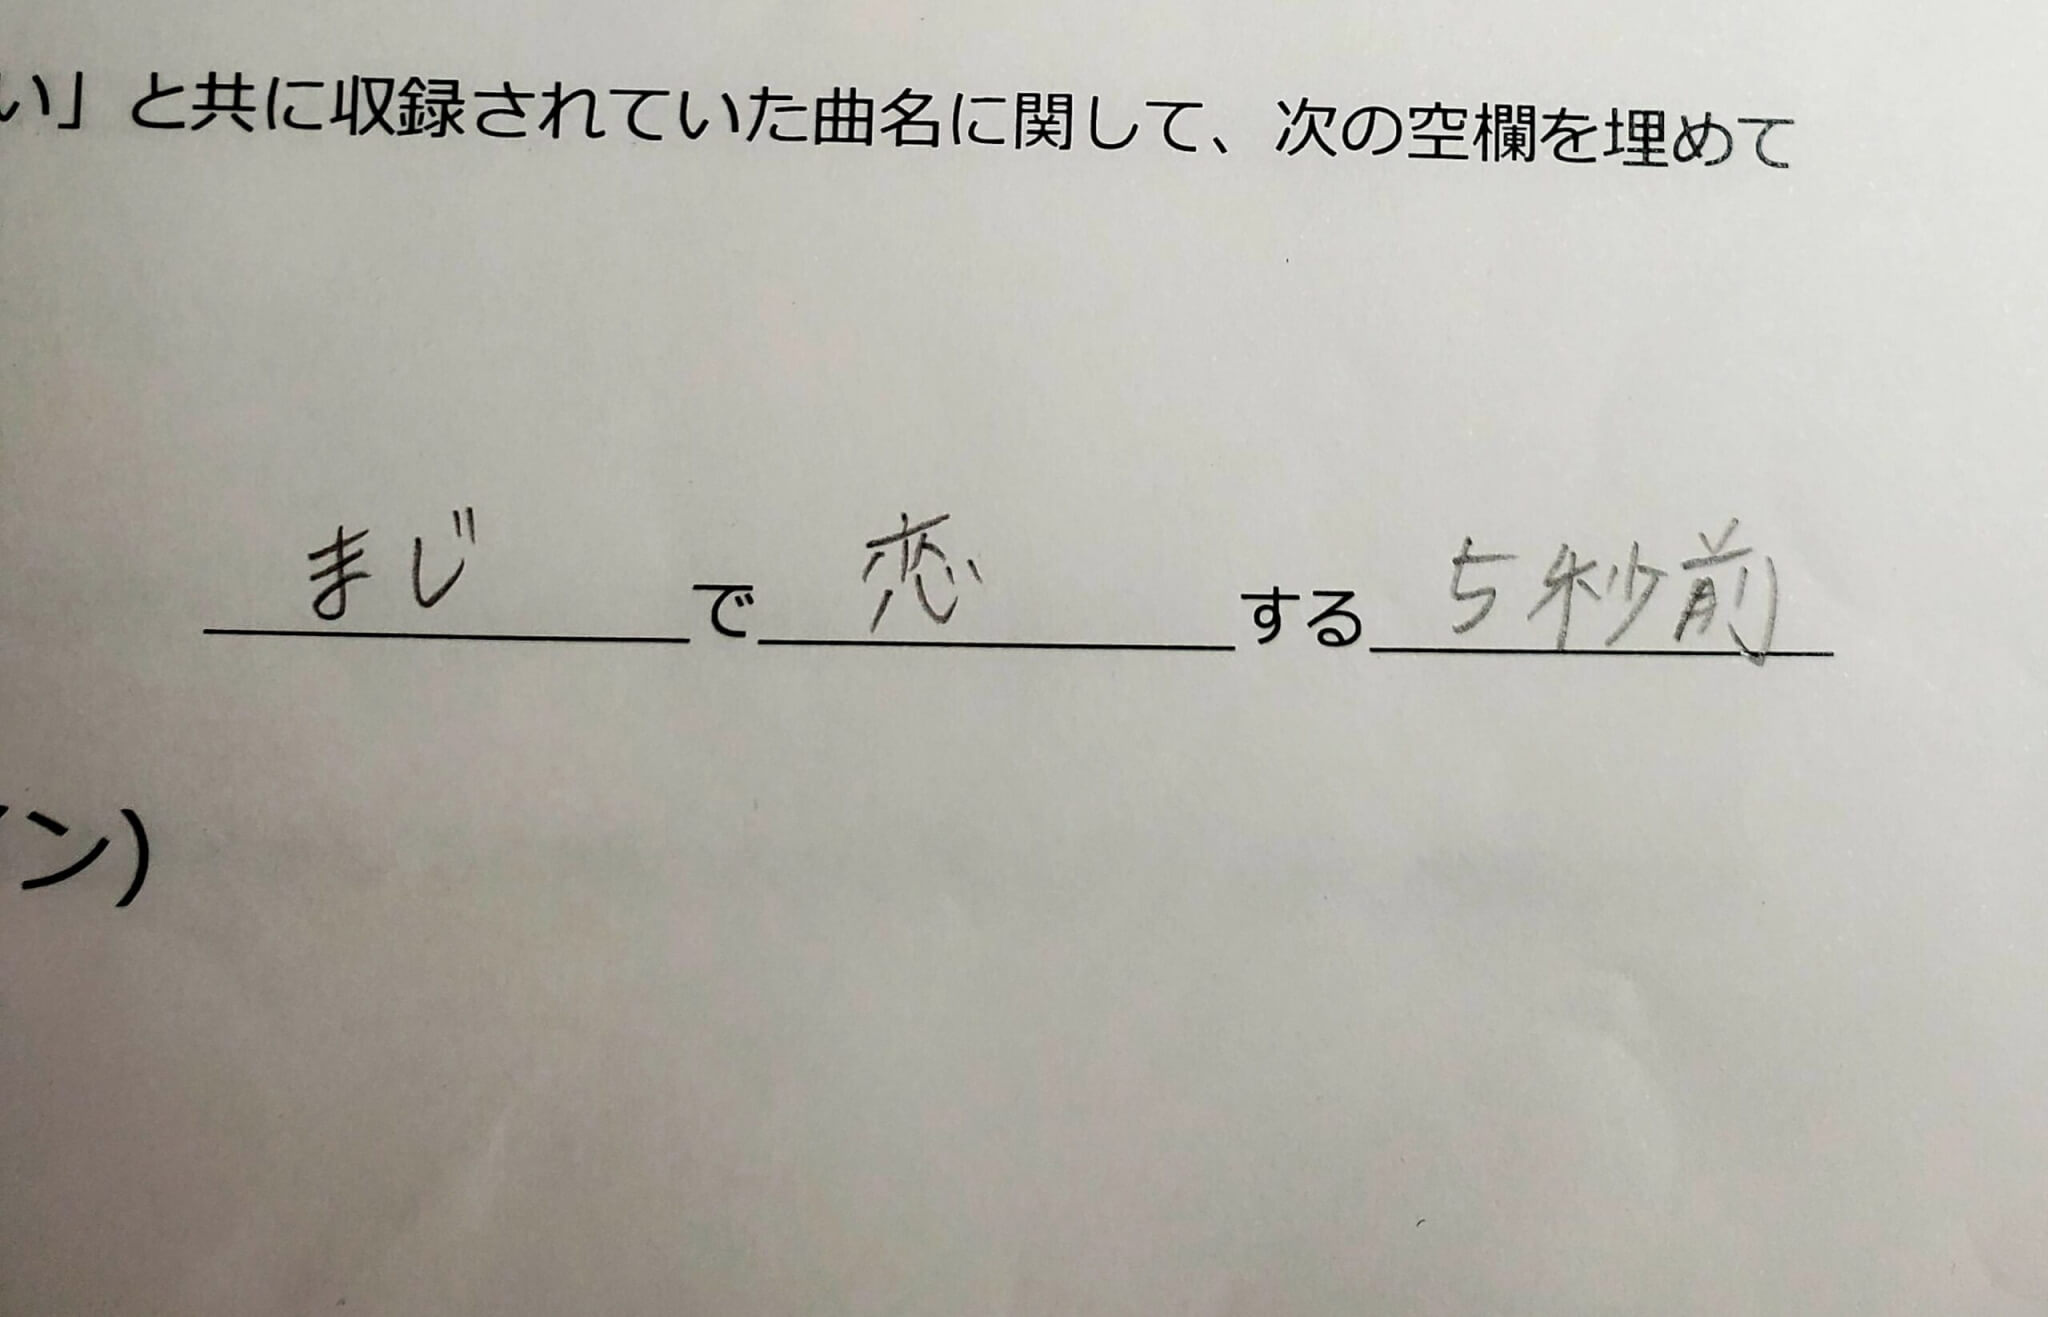 い」と共に収録されていた曲名に関して、次の空欄を埋めて
まじで恋する5秒前
ン)